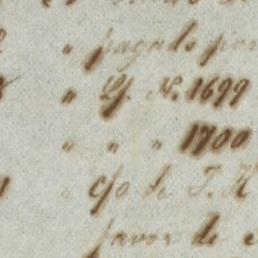 " pagado por
" Lj. N. 1699
" " " 1700
" c/o de T. H
favor de